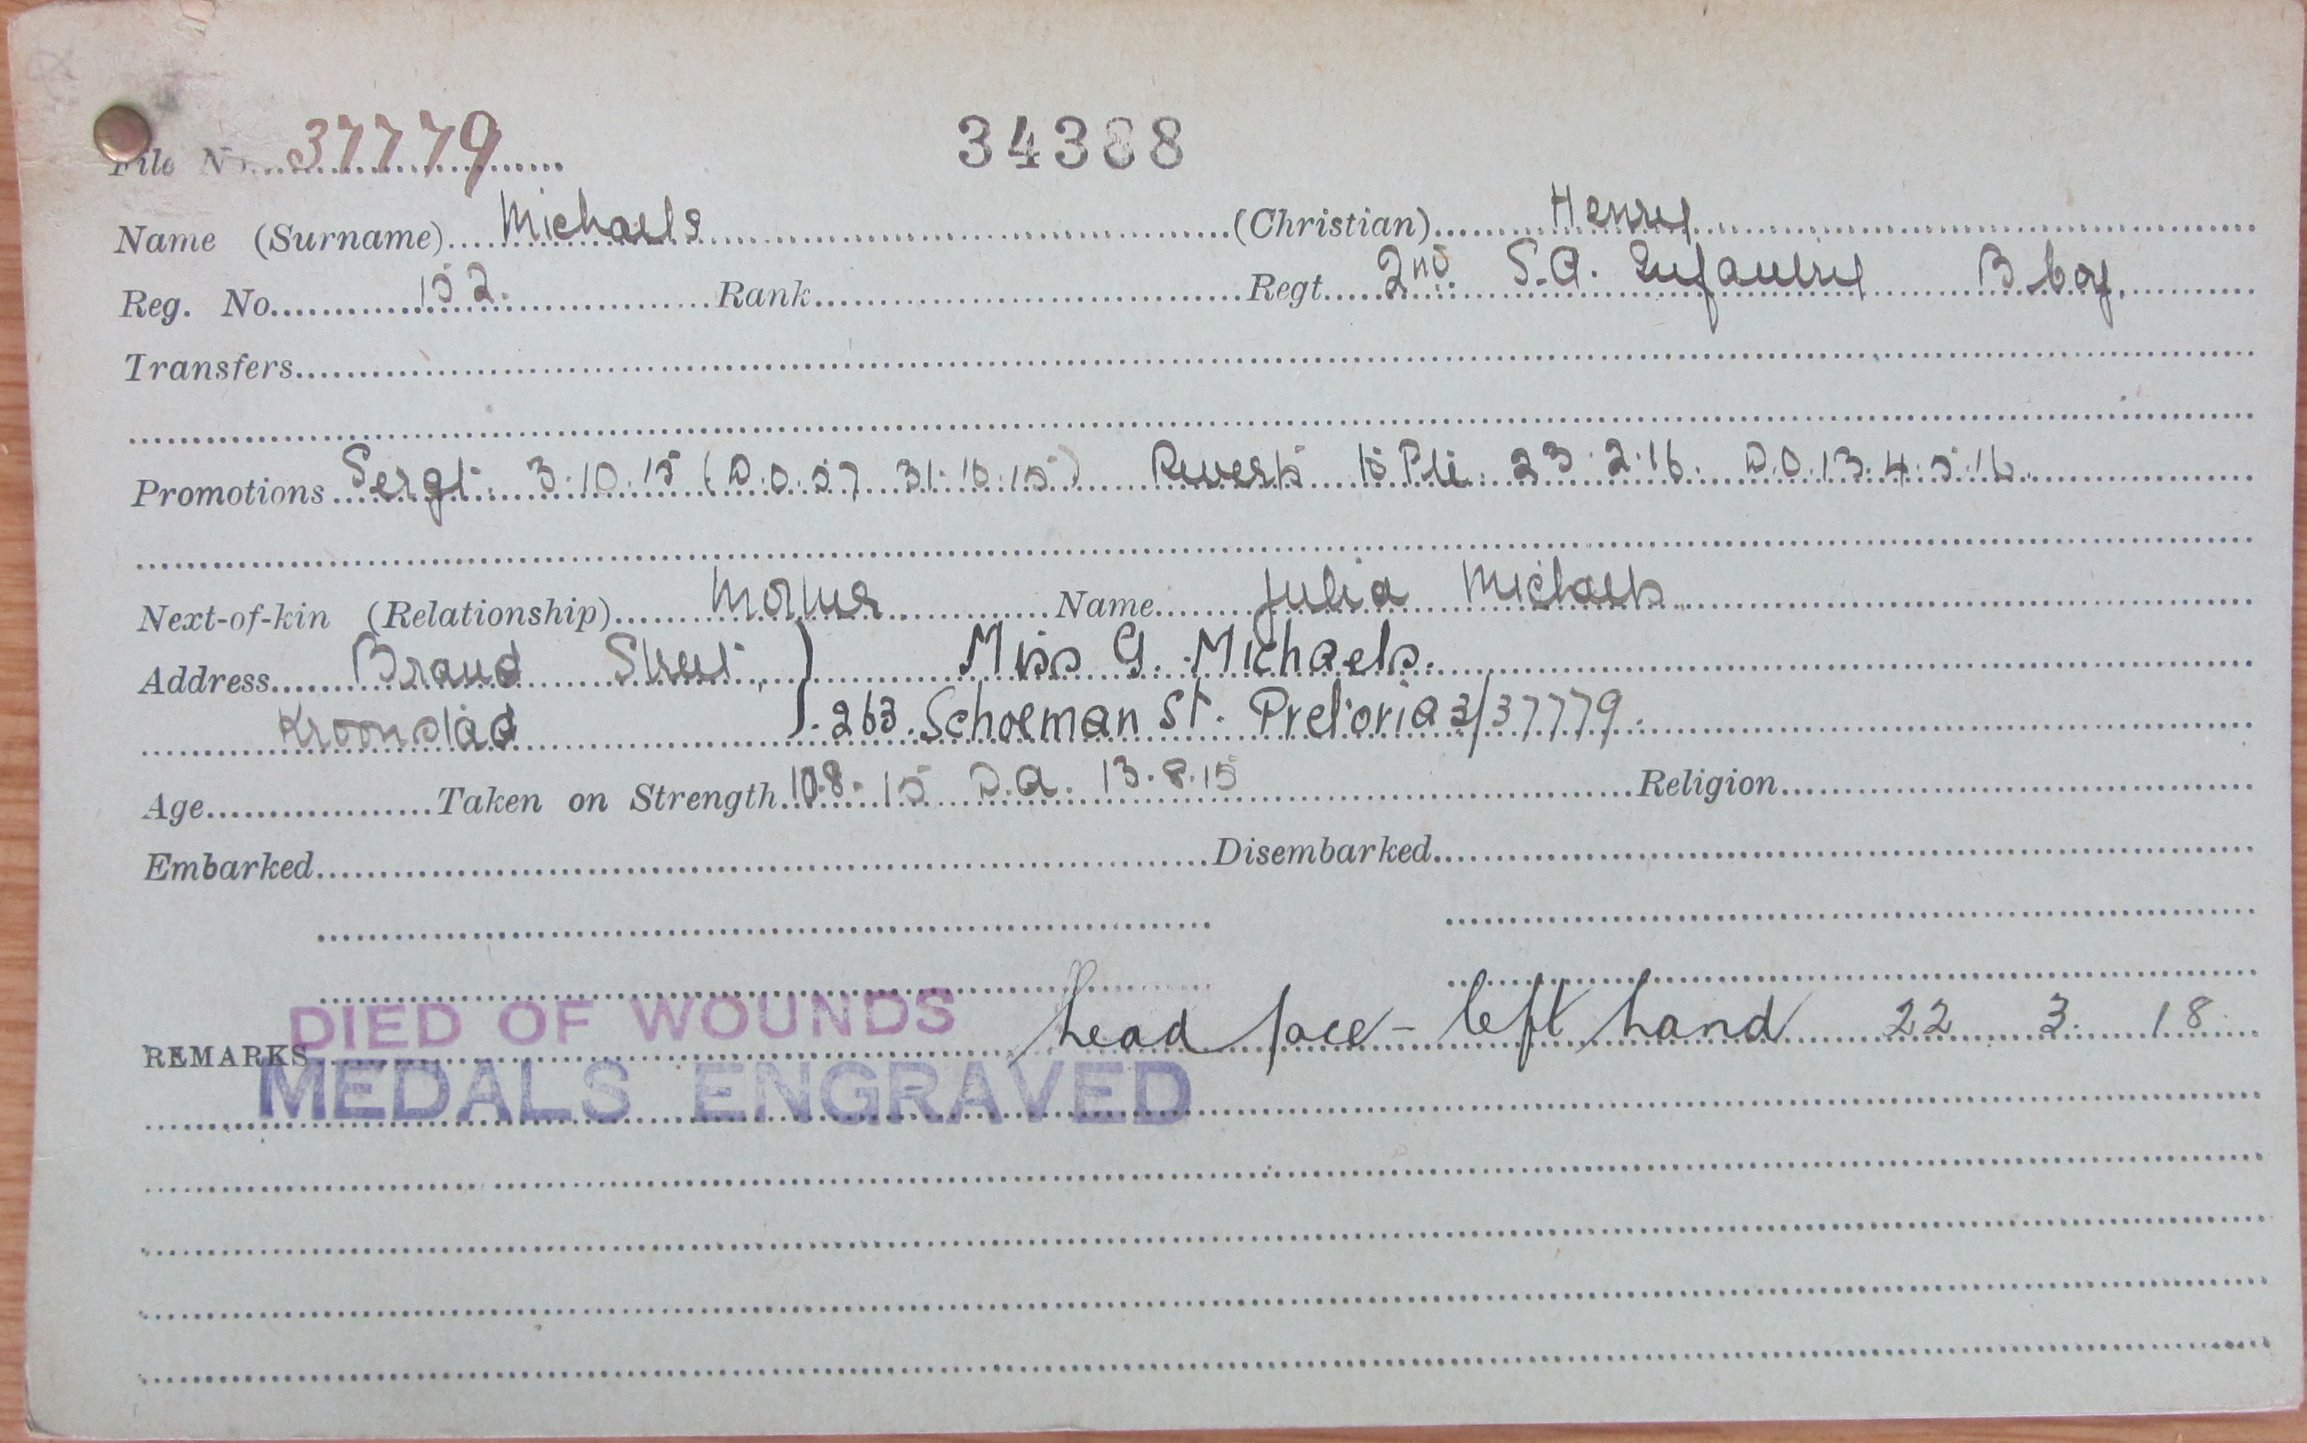 File No. 37779 34388
Name (Surname) Michaels (Christian) Henry
Reg. No. 152. Rank Regt. 2nd. S.A. Infantry B Coy.
Transfers
Promotions Sergt. 3.10.15 (D.O.57 31.10.15) Reverts to Pte. 23.2.16. D.O.13.4.5.16.
Next-of-kin (Relationship) Mother Name Julia Michaels
Address Brand Street, } Miss G. Michaels.
Kroonstad 263. Schoeman St. Pretoria 3/37779.
Age Taken on Strength 10.8.15 D.A. 13.8.15 Religion
Embarked Disembarked
DIED OF WOUNDS
REMARKS head face - left hand 22 3. 18.
MEDALS ENGRAVED